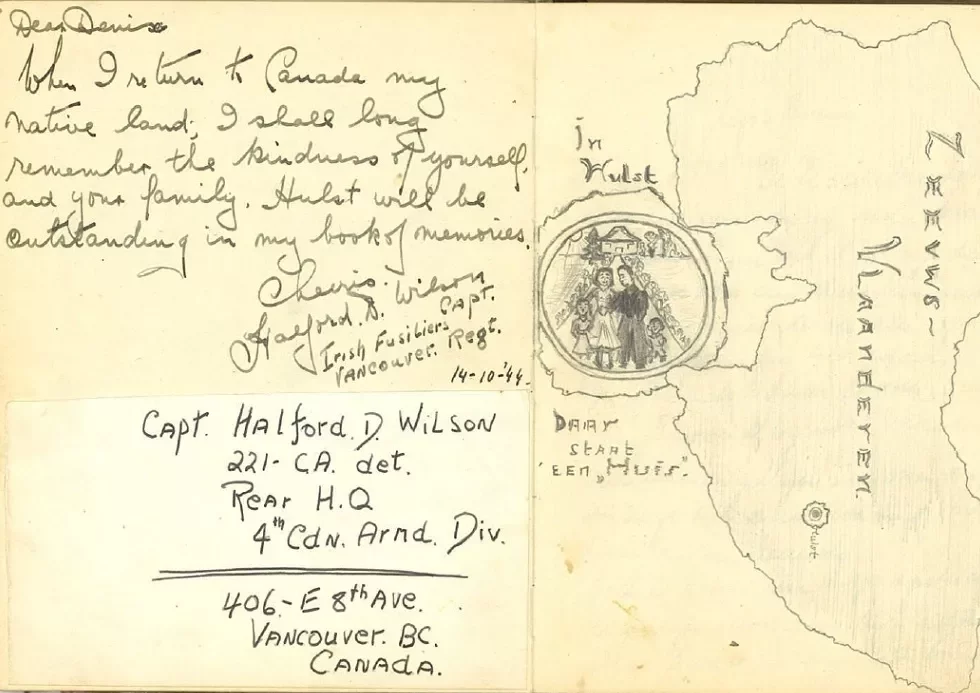 Dear Denise
When I return to Canada my
native land; I shall long
remember the kindness of yourself.
and your family. Hulst will be
outstanding in my book of memories.
Cheerio.
Halford. D. Wilson
Capt.
Irish Fusiliers
Vancouver. Regt.
14-10-'44.
Capt. Halford. D. Wilson
221- CA. det.
Rear H.Q
4th Cdn. Armd. Div.
406.- E 8th Ave.
Vancouver. BC.
Canada.
in
Hulst
Daar
staat
een „Huis".
Zeeuws~
Vlaanderen.
Hulst.